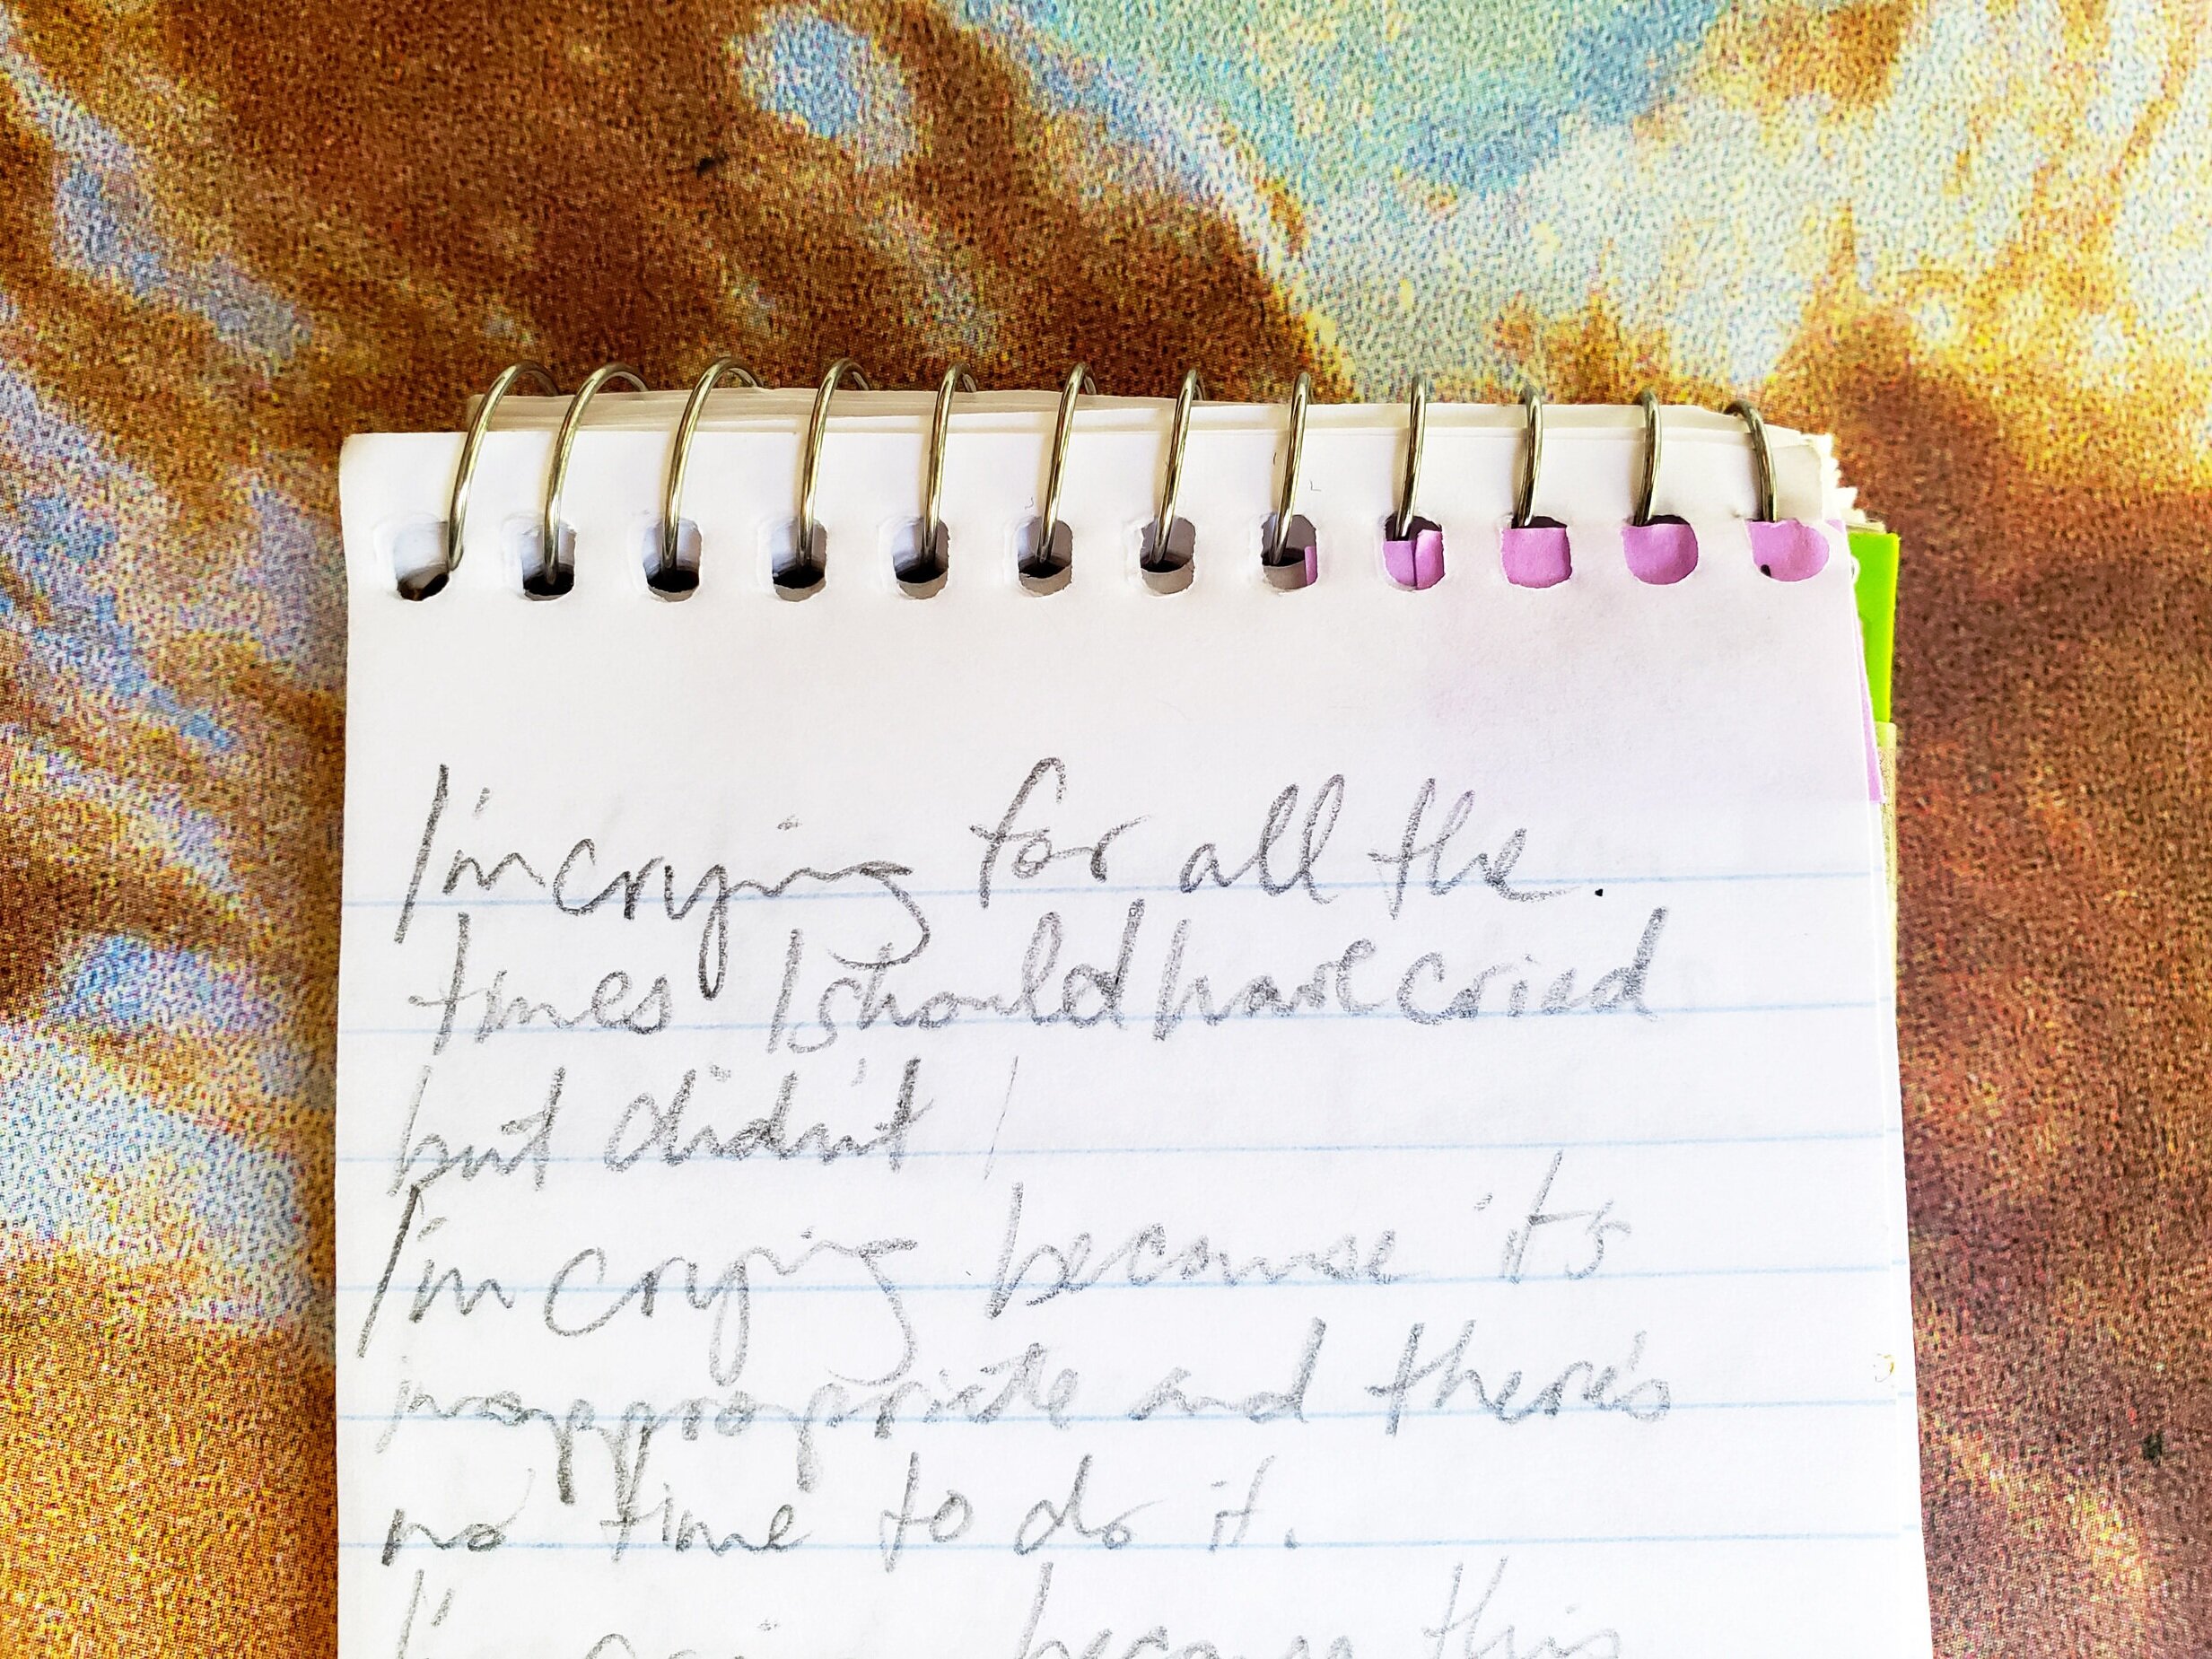 I'm crying for all the.
times I should have cried
but didn't /
I'm crying because it's
inappropriate and there's
no time to do it.
I'm crying because this